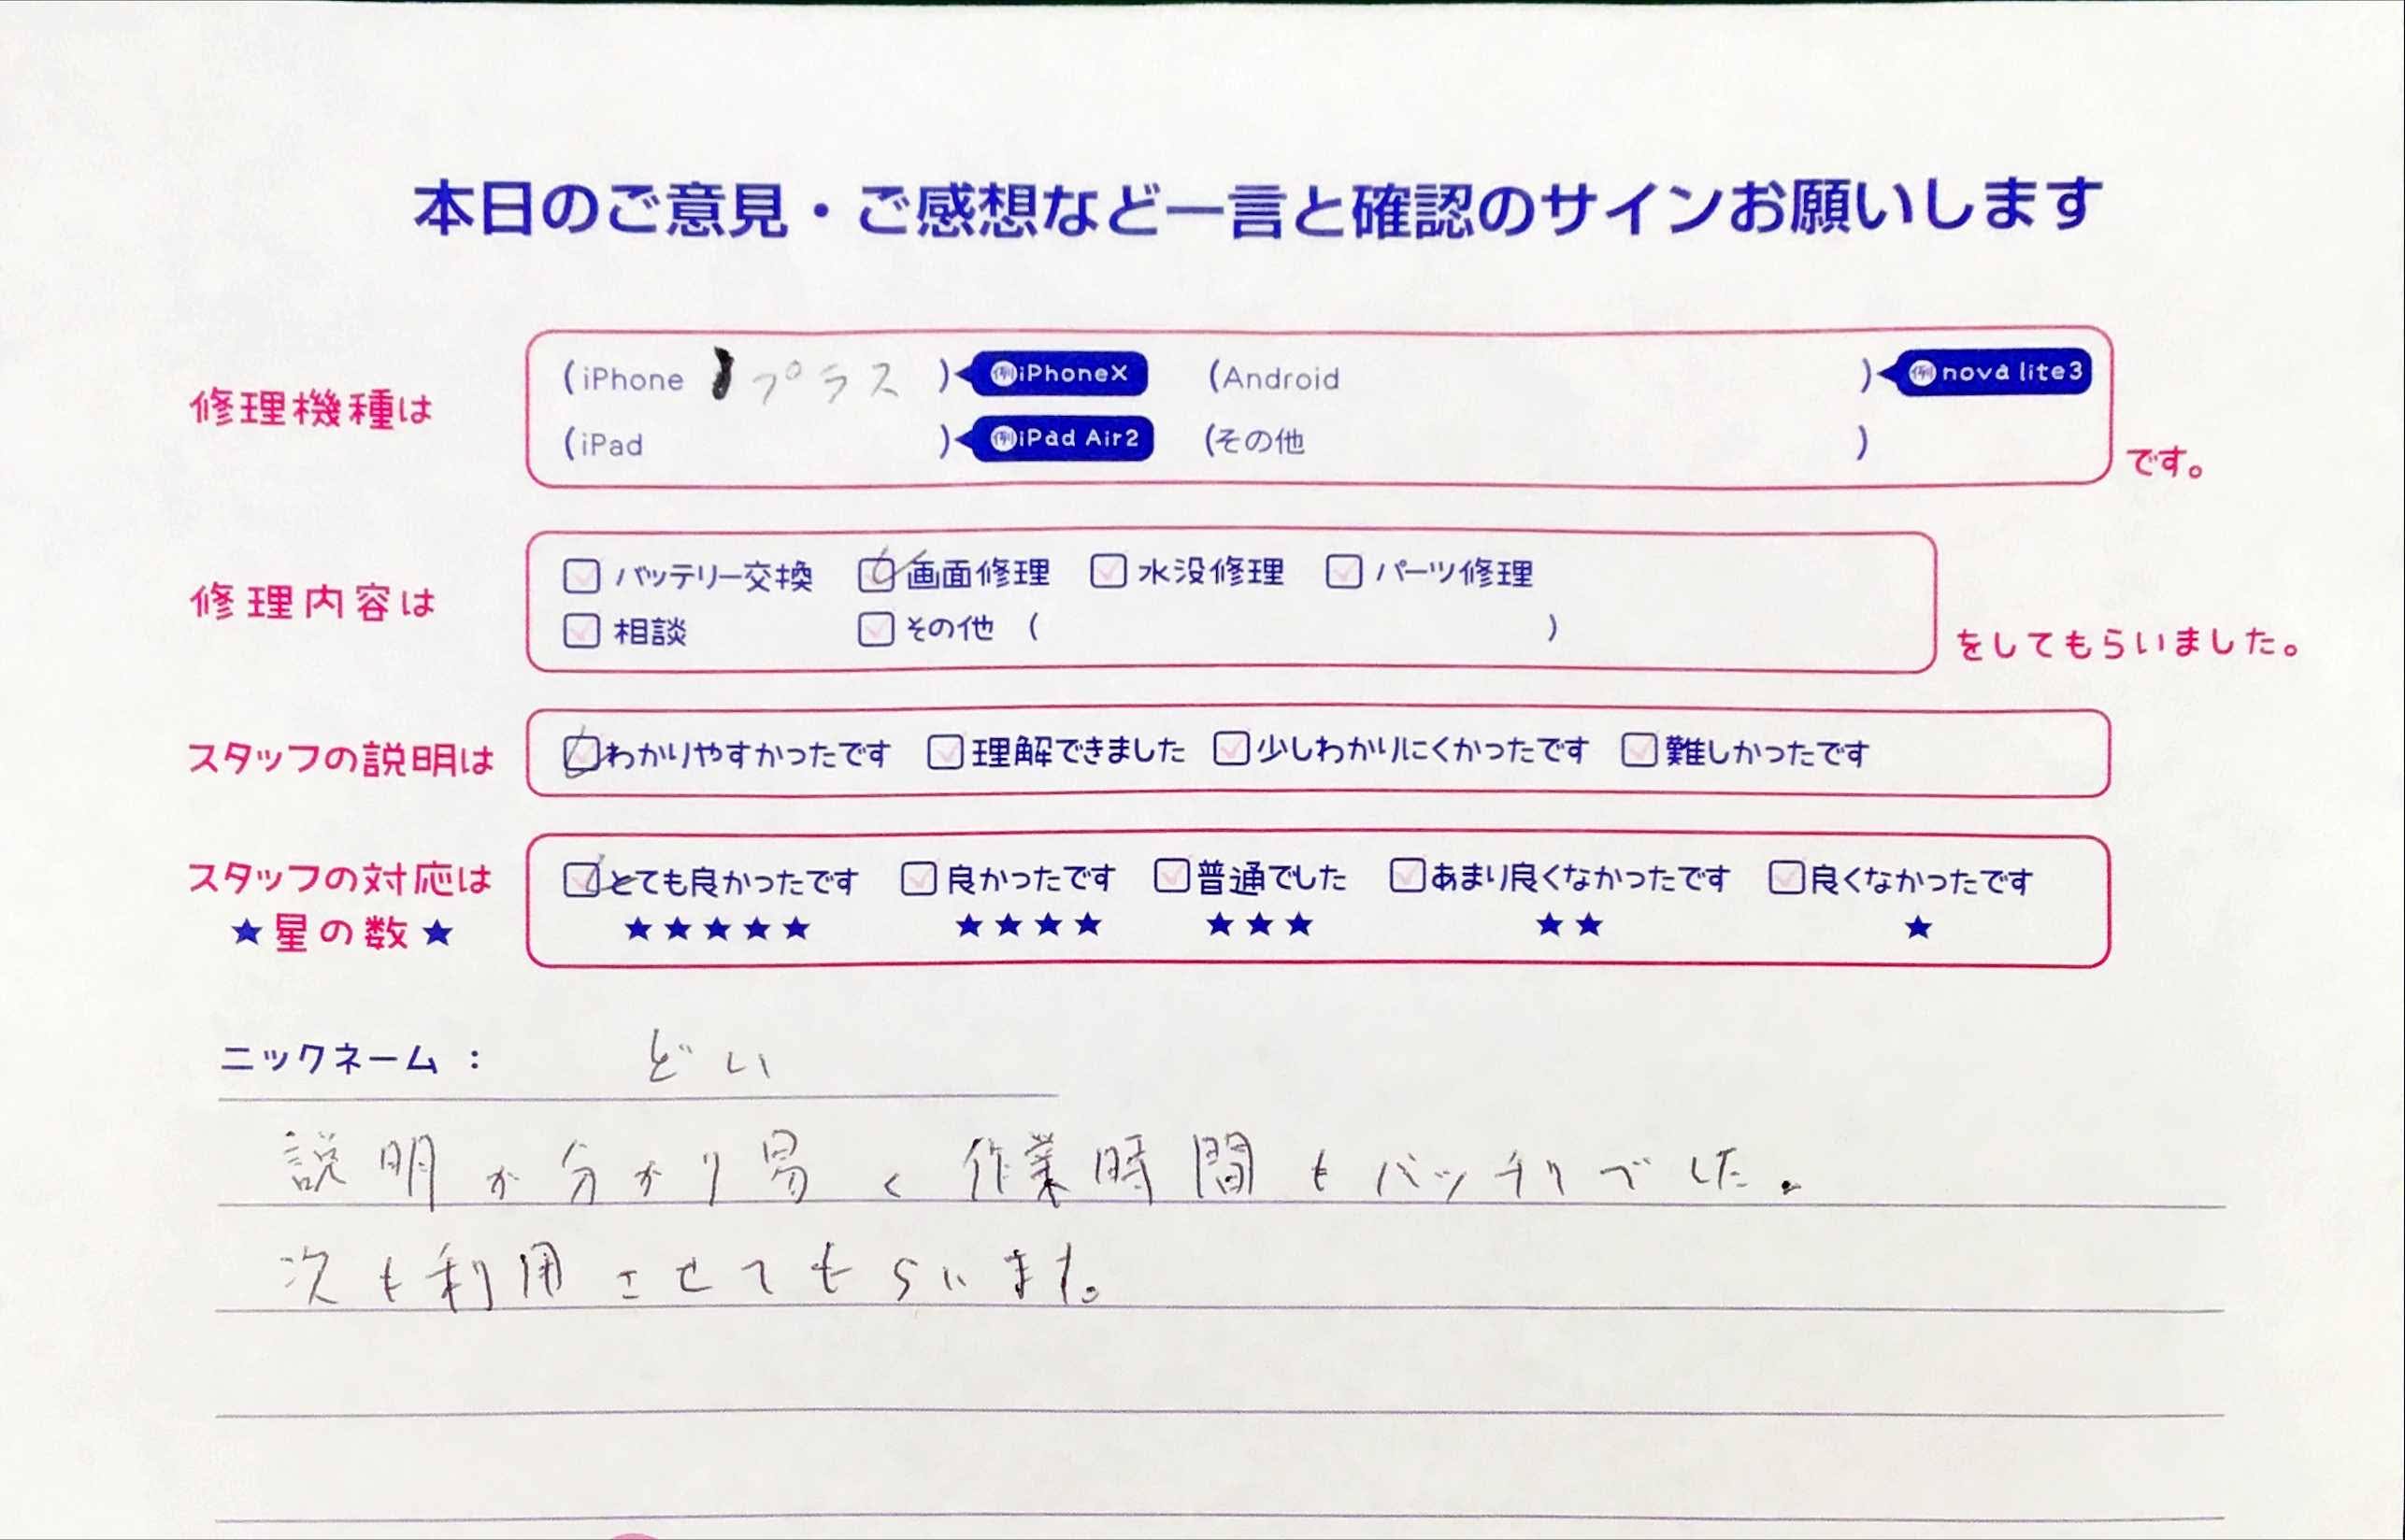 本日のご意見・ご感想など一言と確認のサインお願いします
修理機種は
(iPhone プラス ) 例iPhoneX (Android ) 例nova lite3
(iPad ) 例iPad Air2 (その他 )
です。
修理内容は
バッテリー交換 画面修理 水没修理 パーツ修理
相談 その他 ( )
をしてもらいました。
スタッフの説明は
わかりやすかったです 理解できました 少しわかりにくかったです 難しかったです
スタッフの対応は
★星の数★
とても良かったです 良かったです 普通でした あまり良くなかったです 良くなかったです
★★★★★ ★★★★ ★★★ ★★ ★
ニックネーム : どい
説明が分かり易く作業時間もバッチリでした。
次も利用させてもらいます。